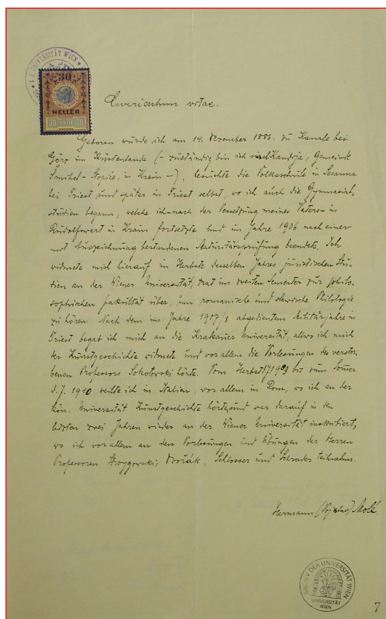 K. K. UNIVERSITÄT WIEN
30
HELLER
Curriculum vitae.
Geboren wurde ich am 14. Dezember 1886. zu Kanale bei
Görz im Küstenlande (– zuständig bin ich nach Kandija, Gemeinde
Šmihel-Stopiče, in Krain –), besuchte die Volksschule in
bei Triest und später in Triest selbst, wo ich auch die Gymnasial-
studien begann, welche ich nach der Versetzung meines Vaters in
Rudolfswert in Krain fortsetzte und im Jahre 1906 nach einer
mit Auszeichnung bestandenen Maturitätsprüfung beendete. Ich
widmete mich hierauf im Herbste desselben Jahres juristischen Stu-
dien an der Wiener Universität, trat im zweiten Semester zur philo-
sophischen Fakultät über, um romanische und slavische Philologie
zu hören. Nach dem im Jahre 1907/8 abgedienten Militärjahre in
Triest begab ich mich an die Krakauer Universität, allwo ich mich
der Kunstgeschichte widmete und vor allem die Vorlesungen des verstor-
benen Professors Sokołowski hörte. Vom Herbst 1909 bis zum Sommer
d. J. 1910 weilte ich in Italien, vor allem in Rom, wo ich an der
kön. Universität Kunstgeschichte hörte, und war darauf in den
letzten zwei Jahren wieder an der Wiener Universität inskribiert,
wo ich vor allem an den Vorlesungen und Übungen der Herren
Professoren Strzygowski, Dvořák, Schlosser und Schrader teilnahm.
Hermann (Vojeslav) Molè
ARCHIV DER UNIVERSITÄT WIEN
UNIVERSITÄT
WIEN
7